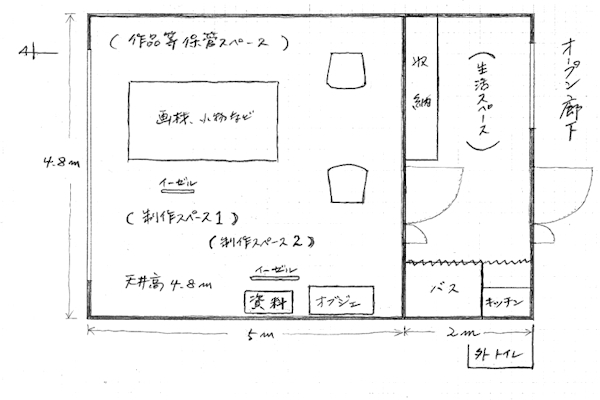 (作品等保管スペース)
収納
(生活スペース)
オープン廊下
画材、小物など
4.8m
イーゼル
(制作スペース1)
(制作スペース2)
天井高4.8m
イーゼル
資料
オブジェ
バス
キッチン
5m
2m
外トイレ